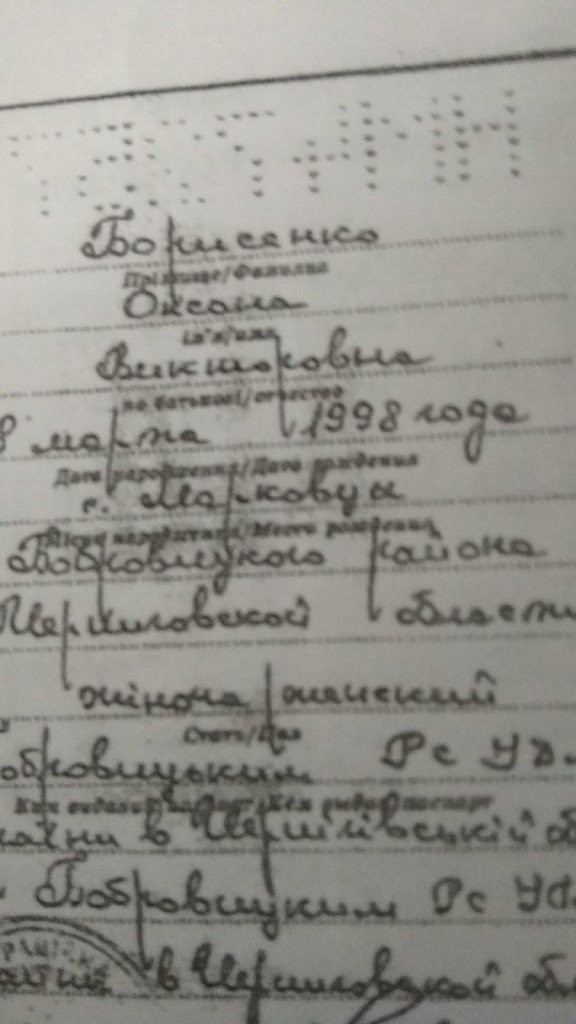 Борисенко
Прізвище/Фамилия
Оксана
Ім'я/имя
Викторовна
по батькові/отчество
8 марта 1998 года
Дата народження/Дата рождения
с. Марковцы
Місце народження/Место рождения
Бобровицкого района
Черниговской области
жіноча женский
Стать/Пол
обровицьким РС УД
Ким виданий паспорт/Кем выдан паспорт
раїни в Чернігівській об
Бобровицким РС УД
в Черниговской обл